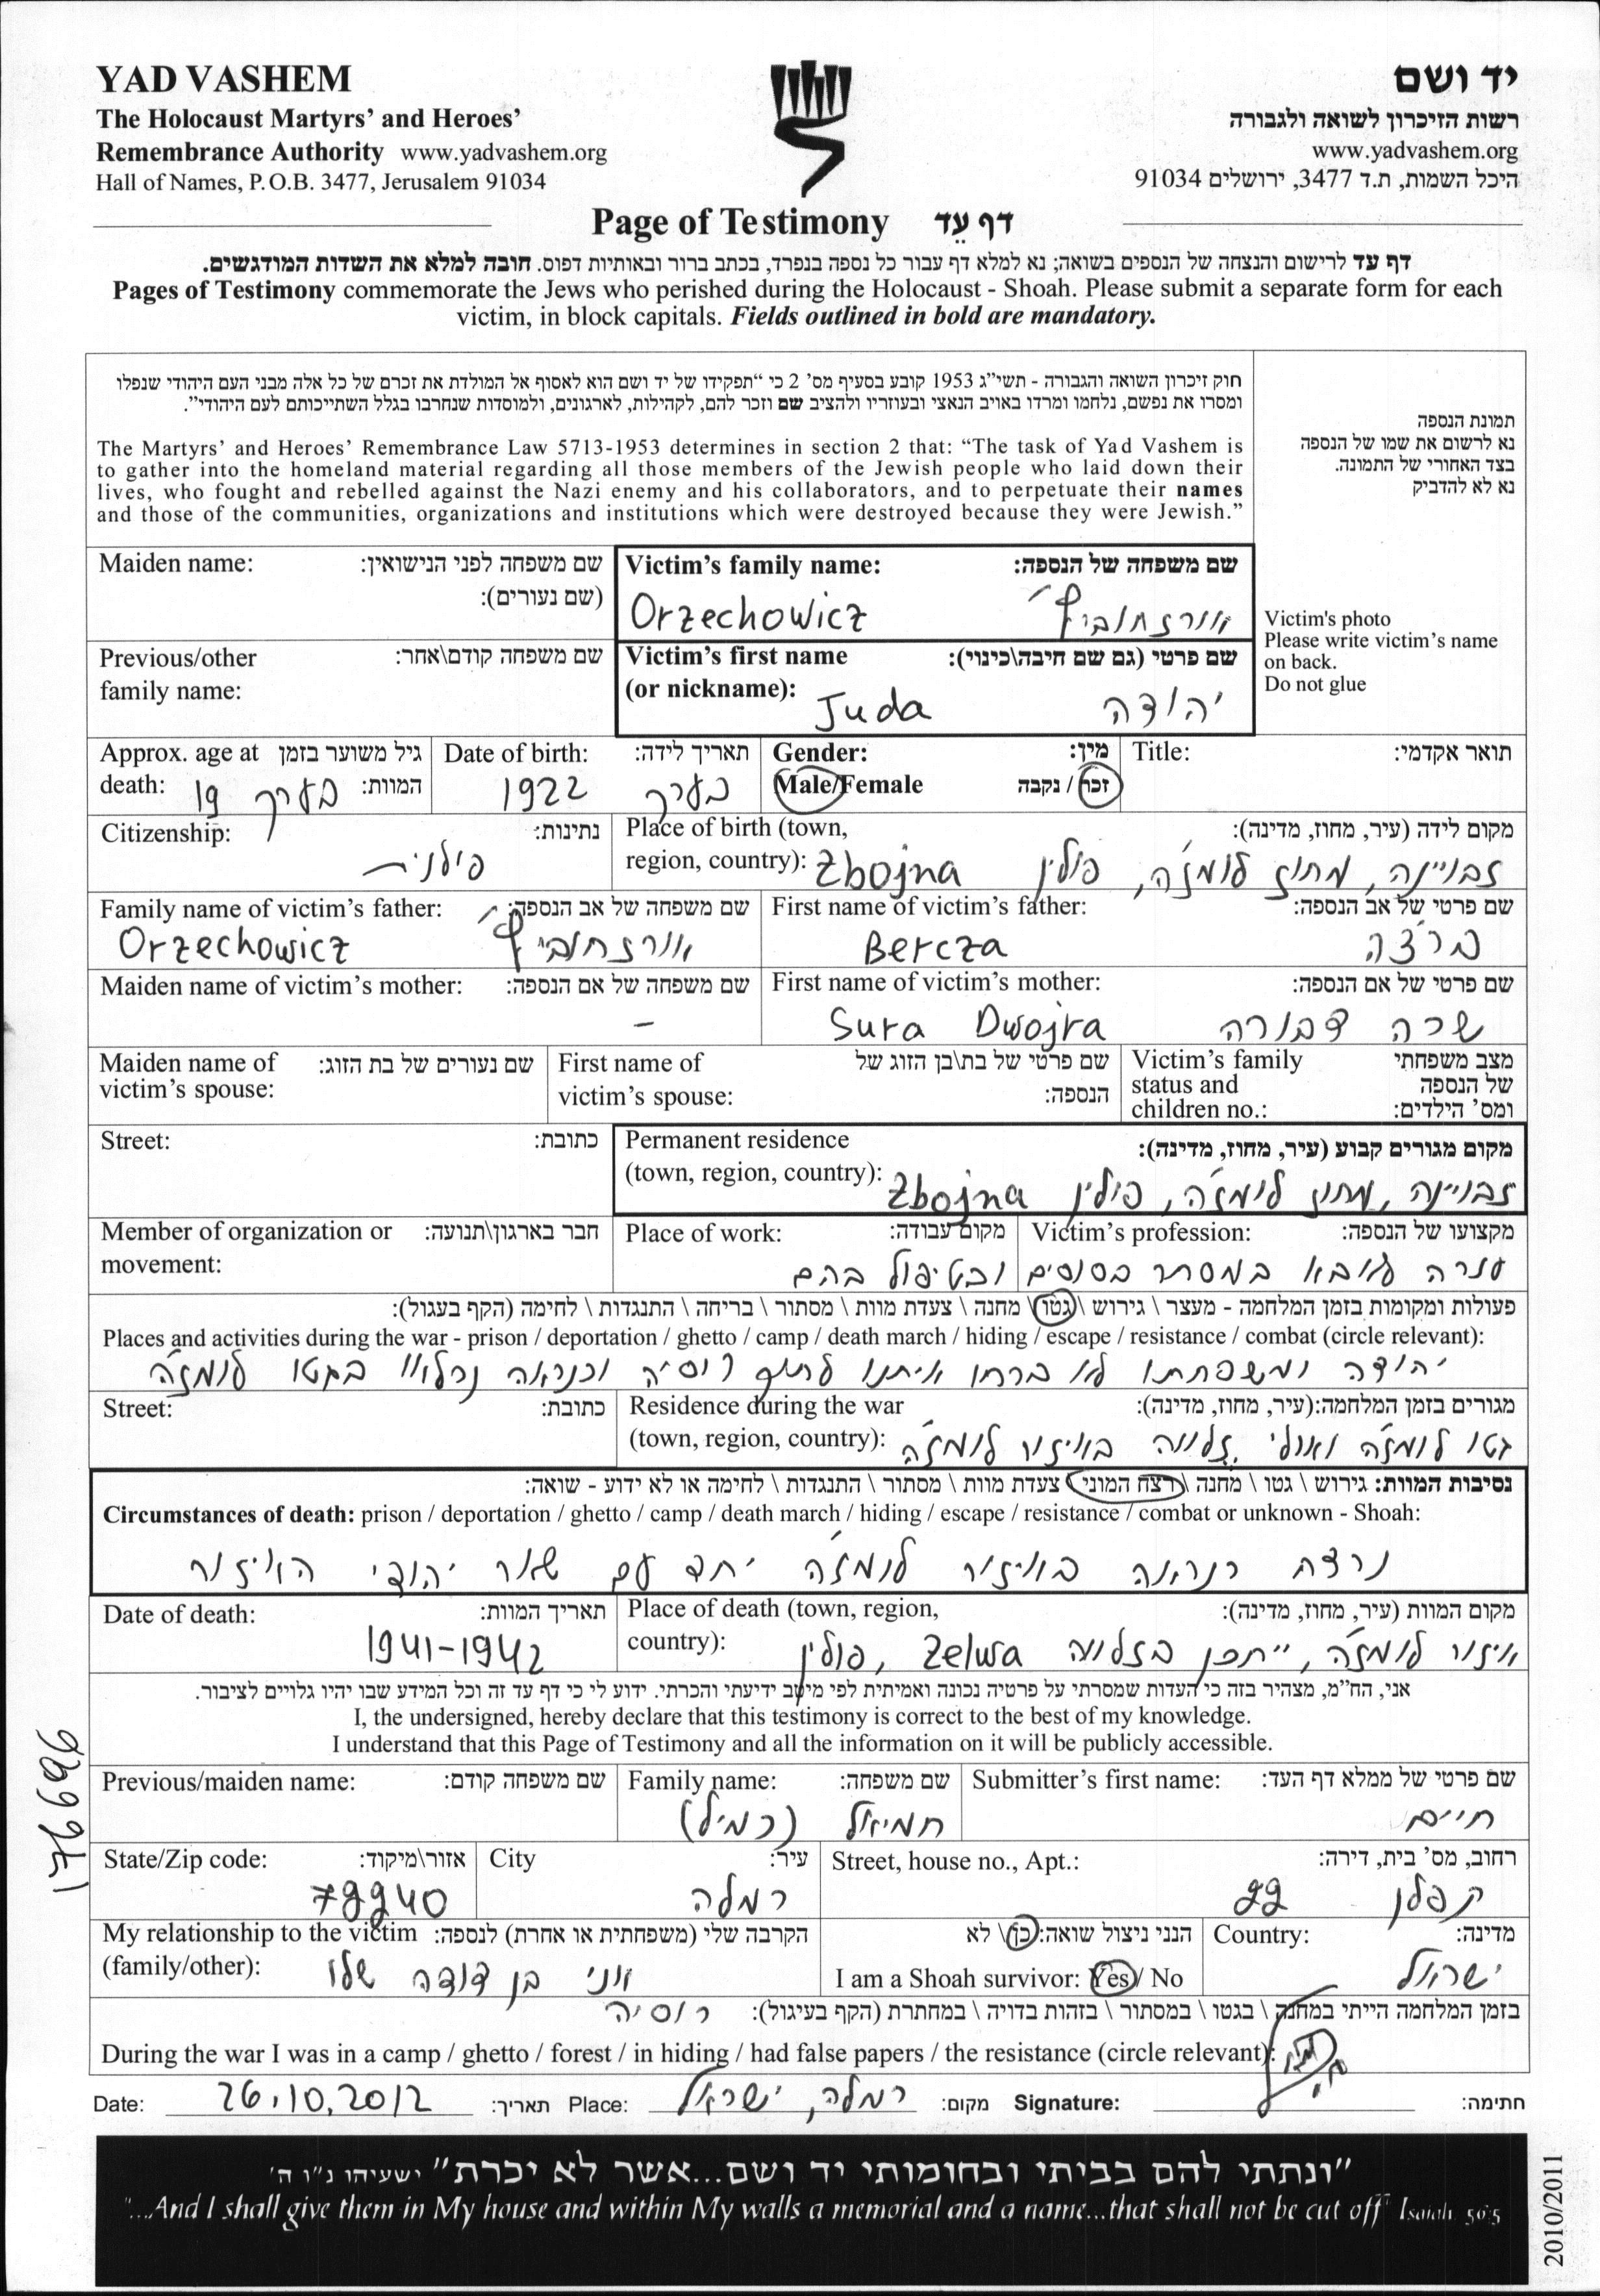 YAD VASHEM
The Holocaust Martyrs' and Heroes'
Remembrance Authority www.yadvashem.org
Hall of Names, P.O.B. 3477, Jerusalem 91034
יד ושם
רשות הזיכרון לשואה ולגבורה
www.yadvashem.org
היכל השמות, ת.ד 3477, ירושלים 91034
Page of Testimony דף עֵד
דף עד לרישום והנצחה של הנספים בשואה; נא למלא דף עבור כל נספה בנפרד, בכתב ברור ובאותיות דפוס. חובה למלא את השדות המודגשים.
Pages of Testimony commemorate the Jews who perished during the Holocaust - Shoah. Please submit a separate form for each
victim, in block capitals. Fields outlined in bold are mandatory.
חוק זיכרון השואה והגבורה - תשי"ג 1953 קובע בסעיף מס' 2 כי "תפקידו של יד ושם הוא לאסוף אל המולדת את זכרם של כל אלה מבני העם היהודי שנפלו
ומסרו את נפשם, נלחמו ומרדו באויב הנאצי ובעוזריו ולהציב שם וזכר להם, לקהילות, לארגונים, ולמוסדות שנחרבו בגלל השתייכותם לעם היהודי".
The Martyrs' and Heroes' Remembrance Law 5713-1953 determines in section 2 that: "The task of Yad Vashem is
to gather into the homeland material regarding all those members of the Jewish people who laid down their
lives, who fought and rebelled against the Nazi enemy and his collaborators, and to perpetuate their names
and those of the communities, organizations and institutions which were destroyed because they were Jewish."
תמונת הנספה
נא לרשום את שמו של הנספה
בצד האחורי של התמונה.
נא לא להדביק
Victim's photo
Please write victim's name
on back.
Do not glue
Maiden name: שם משפחה לפני הנישואין:
(שם נעורים):
Victim's family name: שם משפחה של הנספה:
Orzechowicz אורזחוביץ'
Previous/other שם משפחה קודם\אחר:
family name:
Victim's first name שם פרטי (גם שם חיבה\כינוי):
(or nickname): Juda יהודה
Approx. age at גיל משוער בזמן
death: 19 בערך המוות:
Date of birth: תאריך לידה:
1922 בערך
Gender: מין:
Male/Female זכר / נקבה
Title: תואר אקדמי:
Citizenship: נתינות:
פולנית
Place of birth (town, מקום לידה (עיר, מחוז, מדינה):
region, country): Zbojna זבויינה, מחוז לומז'ה, פולין
Family name of victim's father: שם משפחה של אב הנספה:
Orzechowicz אורזחוביץ'
First name of victim's father: שם פרטי של אב הנספה:
Bercza ברצ'ה
Maiden name of victim's mother: שם משפחה של אם הנספה:
-
First name of victim's mother: שם פרטי של אם הנספה:
Sura Dwojra שרה דבורה
Maiden name of שם נעורים של בת הזוג:
victim's spouse:
First name of שם פרטי של בת\בן הזוג של
victim's spouse: הנספה:
Victim's family מצב משפחתי
status and של הנספה
children no.: ומס' הילדים:
Street: כתובת:
Permanent residence מקום מגורים קבוע (עיר, מחוז, מדינה):
(town, region, country): Zbojna זבויינה, מחוז לומז'ה, פולין
Member of organization or חבר בארגון\תנועה:
movement:
Place of work: מקום עבודה:
Victim's profession: מקצועו של הנספה:
עזרה לאבא במסחר בסוסים ובטיפול בהם
פעולות ומקומות בזמן המלחמה - מעצר \ גירוש \ גטו \ מחנה \ צעדת מוות \ מסתור \ בריחה \ התנגדות \ לחימה (הקף בעגול):
Places and activities during the war - prison / deportation / ghetto / camp / death march / hiding / escape / resistance / combat (circle relevant):
יהודה ומשפחתו לא ברחו איתנו לתוך רוסיה וכנראה נכלאו בגטו לומז'ה
Street: כתובת:
Residence during the war מגורים בזמן המלחמה:(עיר, מחוז, מדינה):
(town, region, country): גטו לומז'ה ואולי זלווה באיזור לומז'ה
נסיבות המוות: גירוש \ גטו \ מחנה \ רצח המוני \ צעדת מוות \ מסתור \ התנגדות \ לחימה או לא ידוע - שואה:
Circumstances of death: prison / deportation / ghetto / camp / death march / hiding / escape / resistance / combat or unknown - Shoah:
נרצח כנראה באיזור לומז'ה יחד עם שאר יהודי האיזור
Date of death: תאריך המוות:
1941-1942
Place of death (town, region, מקום המוות (עיר, מחוז, מדינה):
country): איזור לומז'ה, ייתכן בזלווה Zelwa, פולין
אני, הח"מ, מצהיר בזה כי העדות שמסרתי על פרטיה נכונה ואמיתית לפי מיטב ידיעתי והכרתי. ידוע לי כי דף עד זה וכל המידע שבו יהיו גלויים לציבור.
I, the undersigned, hereby declare that this testimony is correct to the best of my knowledge.
I understand that this Page of Testimony and all the information on it will be publicly accessible.
Previous/maiden name: שם משפחה קודם:
Family name: שם משפחה:
חמיאל (כמיל)
Submitter's first name: שם פרטי של ממלא דף העד:
חיים
State/Zip code: אזור\מיקוד:
72240
City עיר:
רמלה
Street, house no., Apt.: רחוב, מס' בית, דירה:
קפלן 22
My relationship to the victim הקרבה שלי (משפחתית או אחרת) לנספה:
(family/other): אני בן דודה שלו
הנני ניצול שואה: כן \ לא
I am a Shoah survivor: Yes / No
Country: מדינה:
ישראל
בזמן המלחמה הייתי במחנה \ בגטו \ במסתור \ בזהות בדויה \ במחתרת (הקף בעיגול): רוסיה
During the war I was in a camp / ghetto / forest / in hiding / had false papers / the resistance (circle relevant):
Date: 26.10.2012 תאריך: Place: רמלה, ישראל מקום: Signature: חתימה:
"ונתתי להם בביתי ובחומותי יד ושם...אשר לא יכרת" ישעיהו נ"ו ה'
"...And I shall give them in My house and within My walls a memorial and a name...that shall not be cut off" Isaiah 56:5
176696
2010/2011